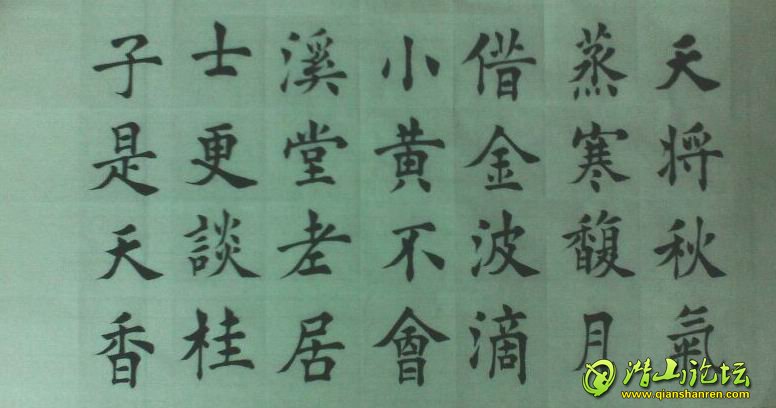 天将秋氣
蒸寒馥月
借金波滴
小黄不會
溪堂老居
士更談桂
子是天香
潜山论坛
www.qianshanren.com